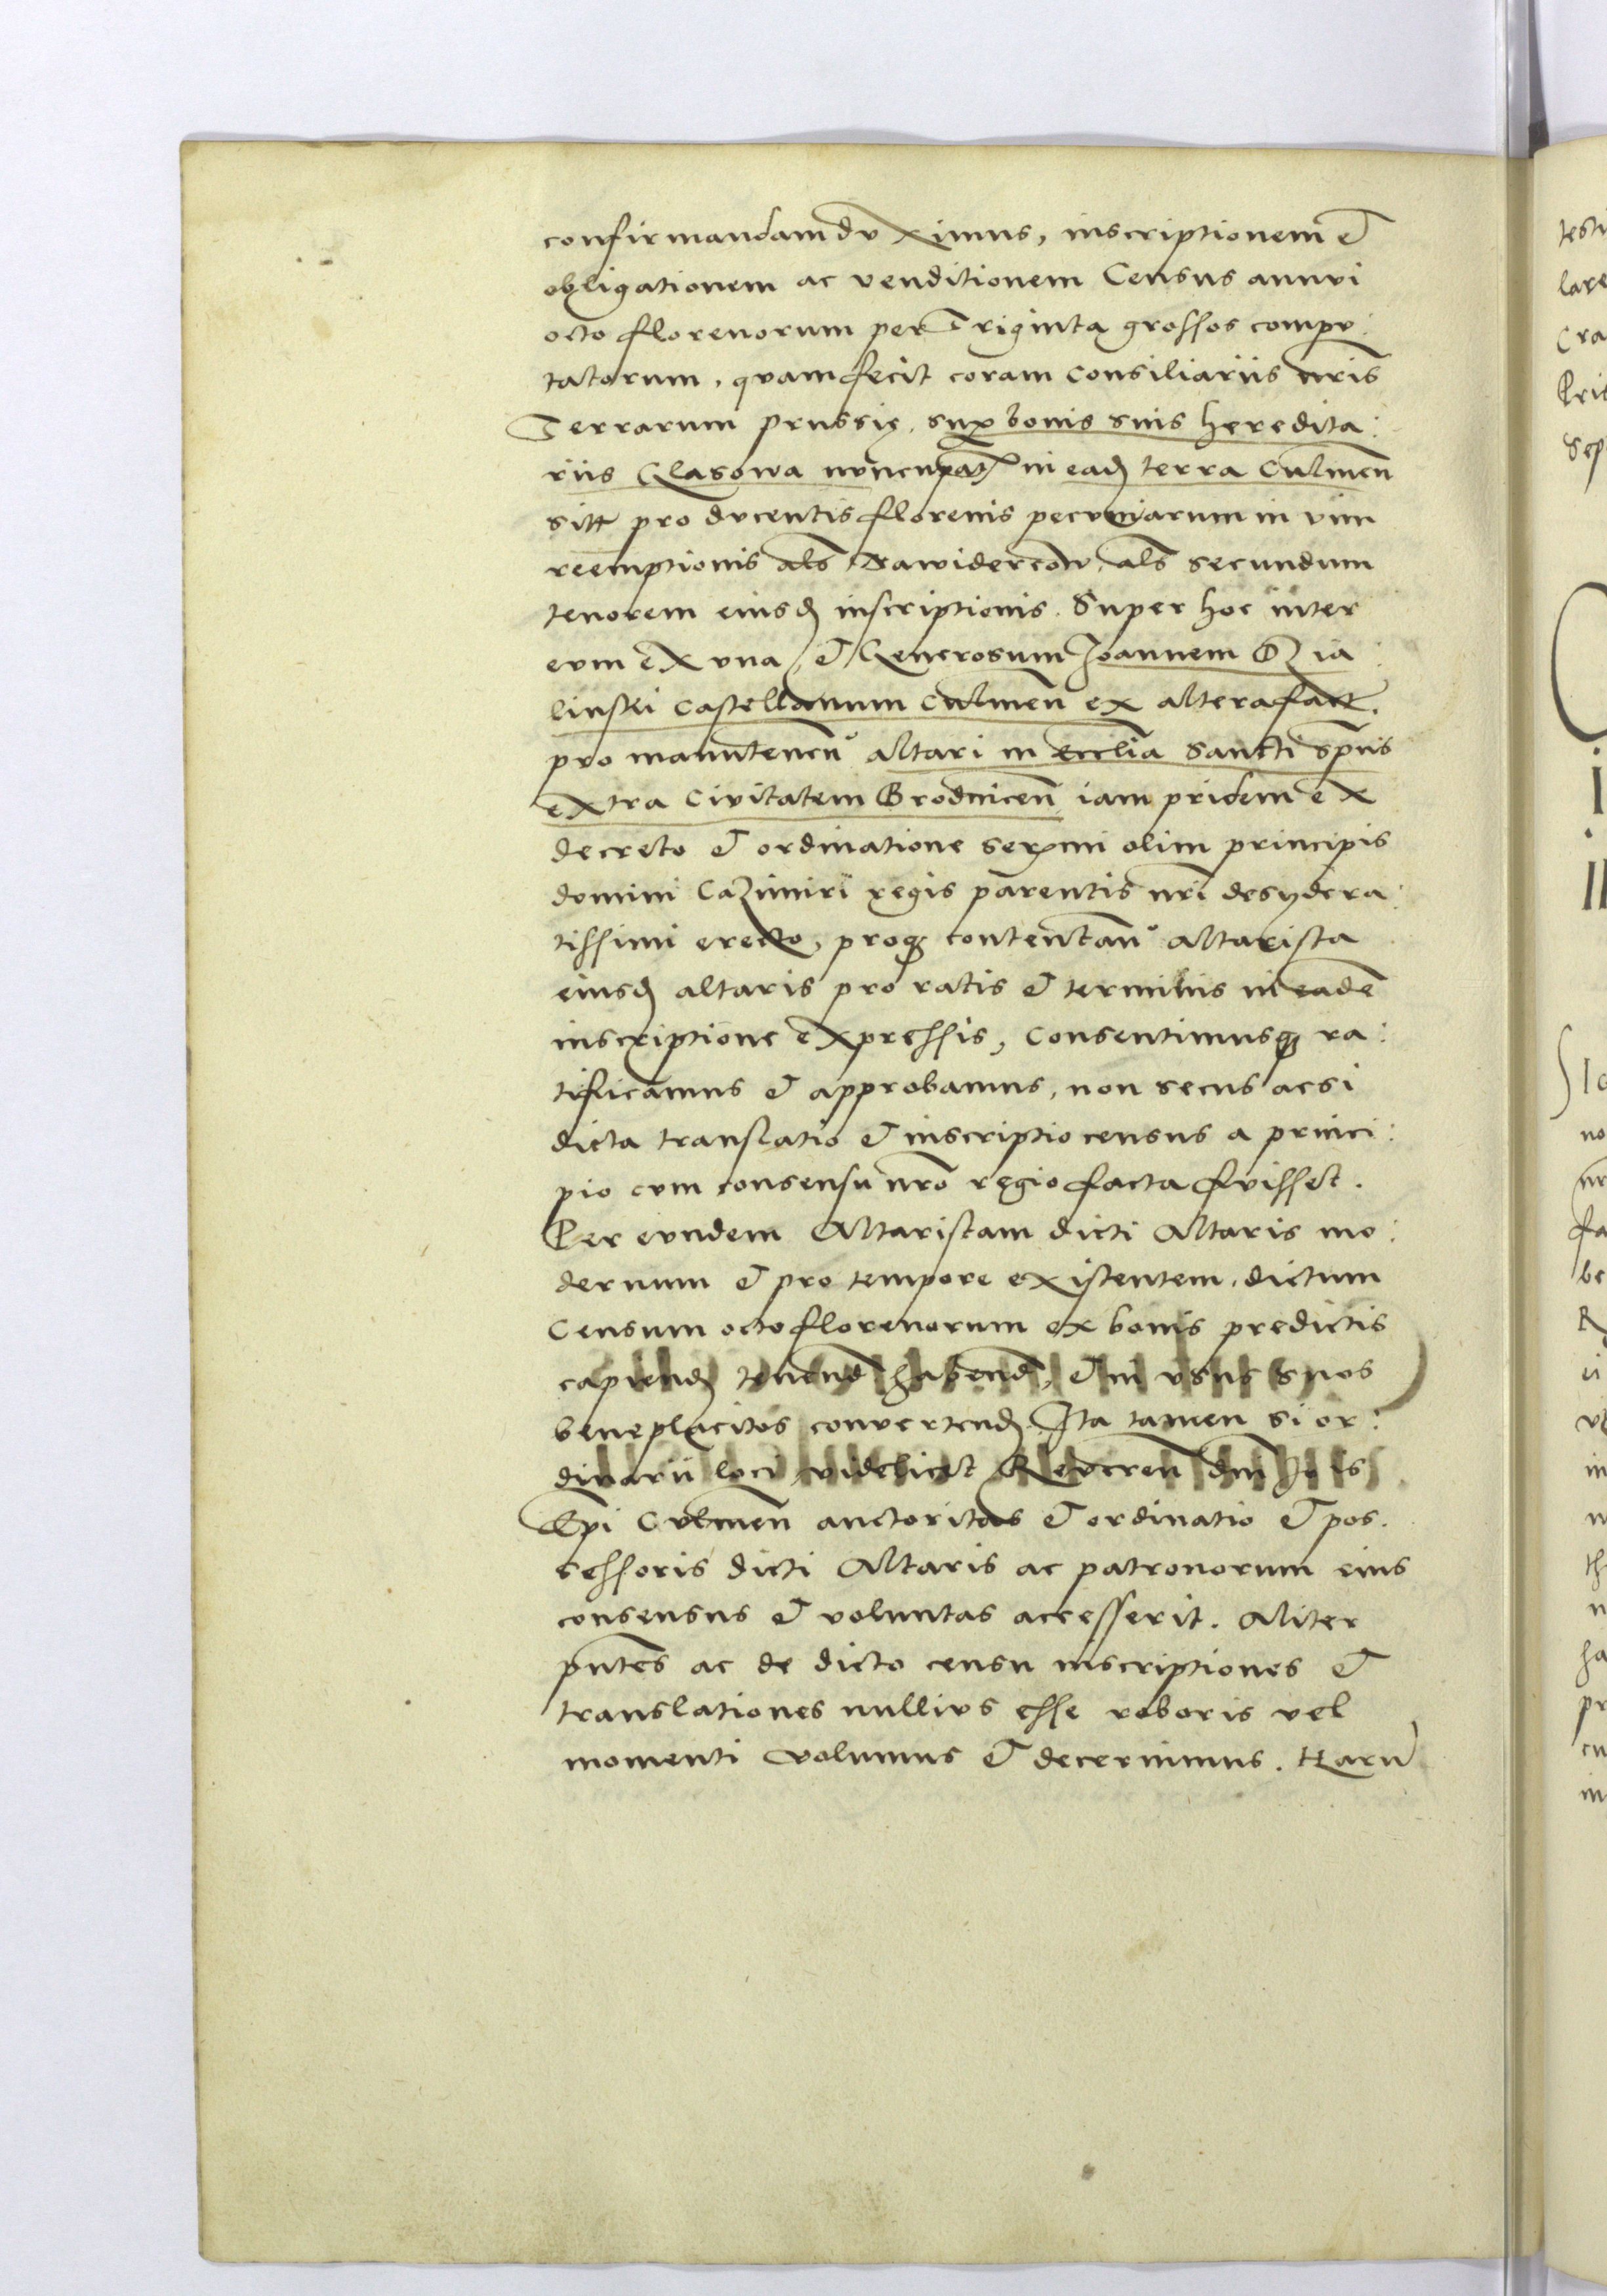 confirmandam duximus, inscriptionem et
obligationem ac venditionem Census annui
octo florenorum per Triginta grossos compu:
tatorum, quam fecit coram consiliariis nris
Terrarum prussię, sup bonis suis heredita:
riis Glasowa nuncupat in ead terra Culmen
sitt pro ducentis florenis pecuniarum in vim
reemptionis als secundum
tenorem eiusd inscriptionis. Super hoc inter
eum ex una, et Generosum Joannem Dzia:
linski castellanum Culmen ex altera fact.
pro manutenen altari in Ecclia Sancti Spus
extra Civitatem Brodnicen iam pridem ex
decreto et ordinatione sermi olim principis
domini Cazimiri regis parentis nri desydera:
tissimi erecto, proq contentan altarista
eiusd altaris pro ratis et terminis in eade
inscriptione expressis, Consentimusq ra:
tificamus et approbamus, non secus acsi
dicta translatio et inscriptio census a princi:
pio cum consensu nro regio facta fuisset.
Per eundem Altaristam dicti Altaris mo:
dernum et pro tempore existentem, dictum
Censum octo florenorum ex bonis predictis
capiend tenend habend, et in usus suos
beneplacitos convertend. Ita tamen si or:
dinarii loci videlicet Reveren dni Jo is
Epi Culmen auctoritas et ordinatio et pos.
sessoris dicti Altaris ac patronorum eius
consensus et voluntas accesserit. Aliter
pntes ac de dicto censu inscriptiones et
translationes nullius esse roboris vel
momenti volumus et decernimus. Haru